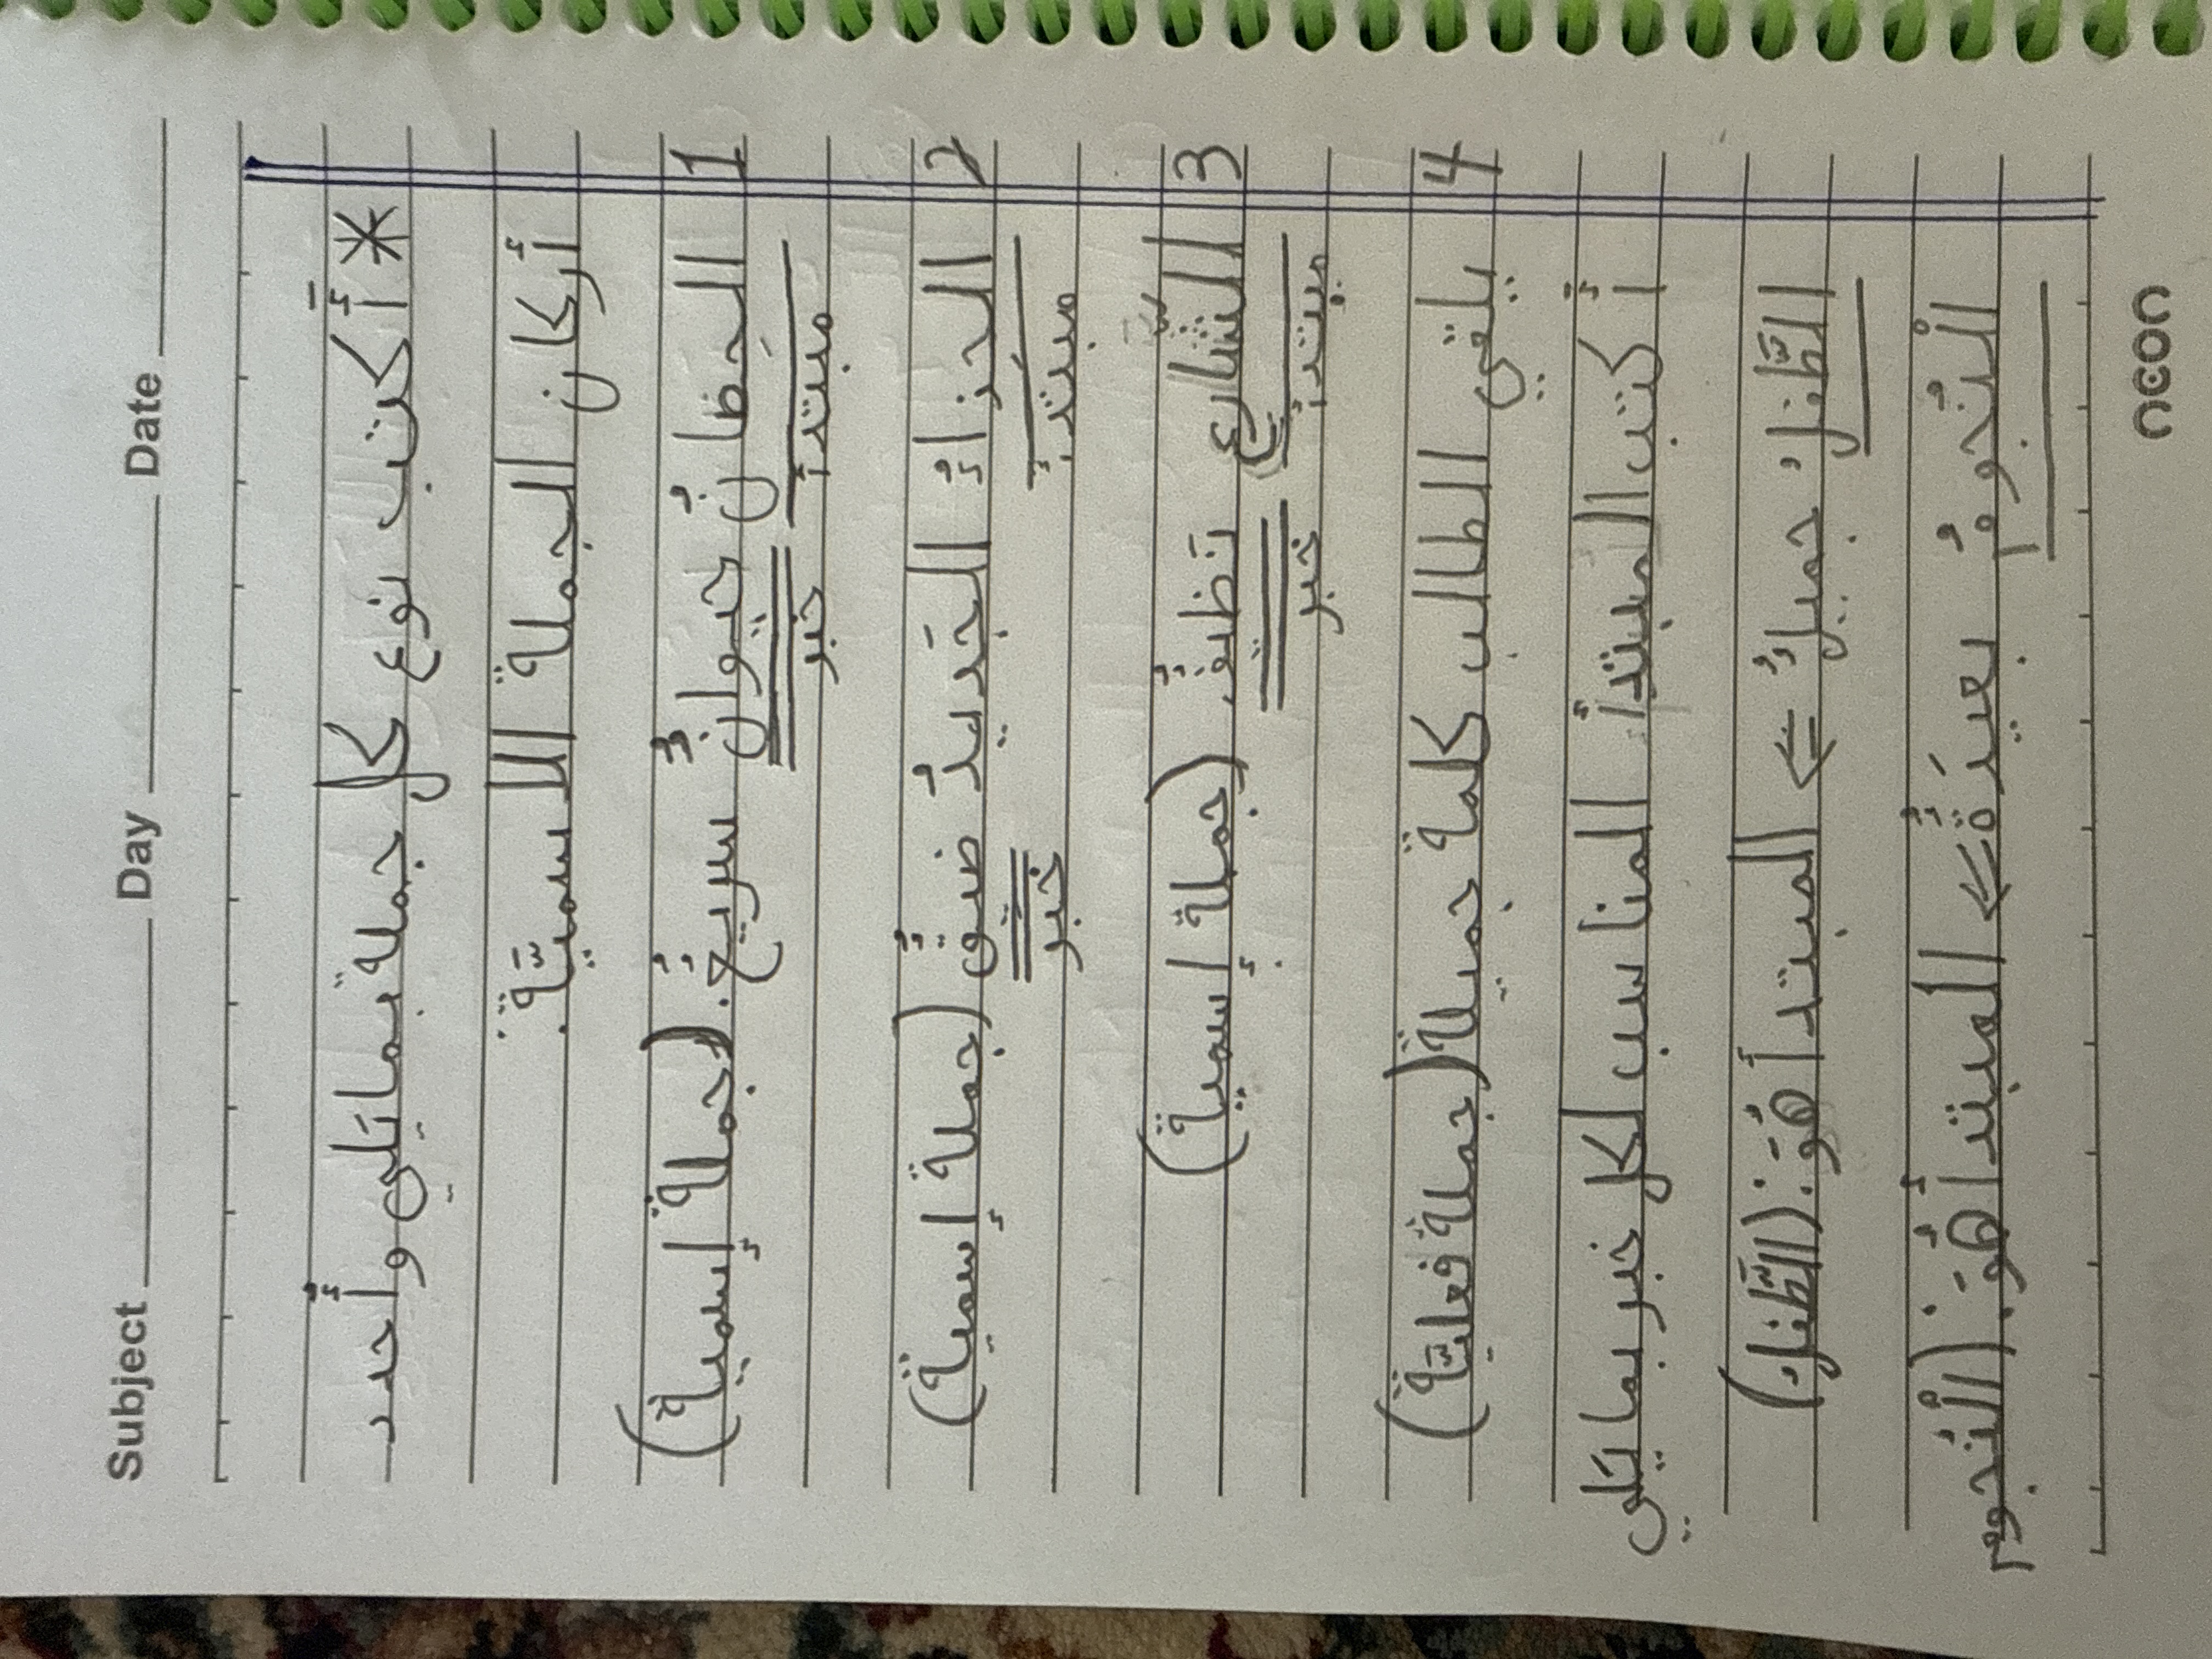 Subject Day Date
* أكتب نوع كل جملة بما يَلي وأحدد
أركان الجملة السميَّة:
1 الحطانُ حيوانٌ سريعٌ. (جملة إسمية)
مبتدأ خبر
2 الحزاءُ الجَديدُ ضيقٌ (جملة إسمية)
مبتدأ خبر
3 الشَّارع نَظيفٌ. (جملة إسمية)
مبتدأ خبر
4 يلقي الطالب كلمة جميلة (جملة فعليَّة)
أكتب المبتدأ المناسب لكل خبر بما يَلي
الطَّفلُ جميلٌ ⇐ المبتدأ هُوَ: (الطَّفل)
النْجُومُ بعيدَةٌ ⇐ المبتدأ هُوَ: (النْجوم
neon